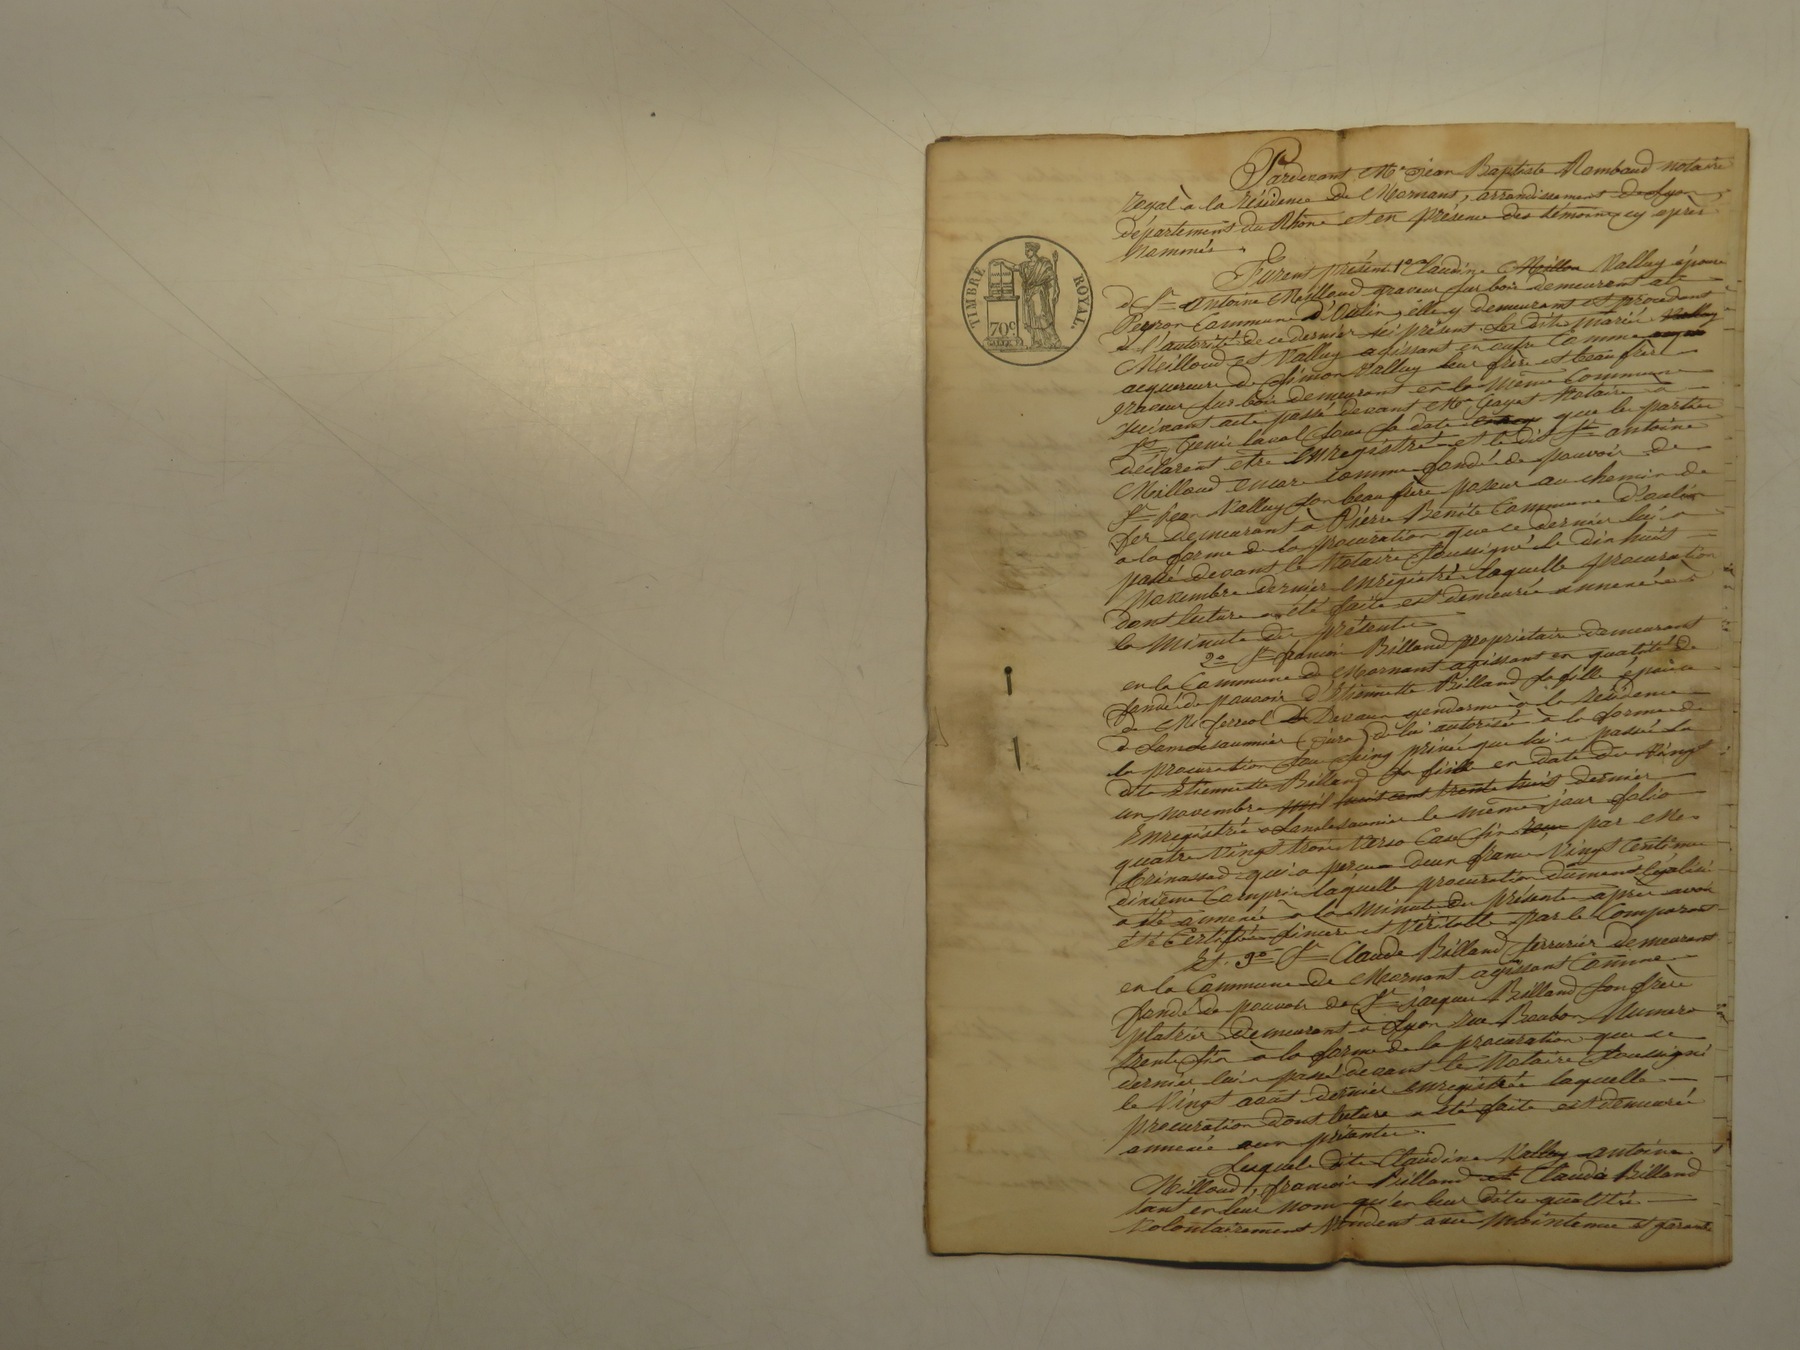 Pardevant Me Jean Baptiste Rambaud notaire
royal à la résidence de Mornant, arrondissement de Lyon,
département du Rhône et en présence des témoins cy après
Nommés.
TIMBRE ROYAL.
70c.
Furent présent 1o Claudine Valluy épouse
d Sr Antoine Meilloud graveur sur bois demeurant au
Perron Commune d'Oulin, elle y demeurant et procédant
à l'autorité de ce dernier ici présent. Les dits Mariés
Meilloud et Valluy agissant en outre Comme
acquereurs de Simon Valluy leur frère et beau frère
graveur sur bois demeurant en la même Commune
suivant acte passé devant Me Gayet Notaire à
St Genis laval sous sa date que les parties
déclarent etre enregistré et le dit Sr antoine
Meilloud encore comme fondé de pouvoir de
Sr Jean Valluy son beau frère poseur au chemin de
fer demeurant à Pierre Bénite Commune d'oulin
a la forme de la procuration que ce dernier lui a
passé devant le Notaire Soussigné le dix huit
Novembre dernier enregistré laquelle procuration
dont lecture a été faite est demeurée annexée à
la Minute des présentes
2o Sr françois Billand propriétaire demeurant
en la Commune de Mornant agissant en qualité de
fondé de pouvoir d'Etiennette Billand sa fille épouse
de Me ferreol Devaux gendarme à la résidence
d Lonslesaunier (Jura) de lui autorisée à la forme de
la procuration sous seing privé que lui a passée la
dite Etiennette Billand sa fille en date du Vingt
un novembre mil huit cent trente huit dernier
Enregistrée a Lonslesaunier le même jour folio
quatre Vingt trois Verso Case six par Me
qui a perçu deux francs Vingt Centimes
dixième Compris laquelle procuration dument légalisée
a été annexée a la Minute des présentes après avoir
été Certifiée sincère et véritable par le Comparant
Et. 3o Sr Claude Billand serrurier demeurant
en la Commune de Mornant agissant Comme
fondé de pouvoir de Sr jacques Billand son frère
platrier demeurant a Lyon rue Bourbon Numero
trente six a la forme de la procuration que ce
dernier lui a passé devant le Notaire Soussigné
le Vingt aout dernier enregistrée laquelle
procuration dont lecture a été faite est demeurée
annexée aux présentes.
Lesquels dits Claudine Valluy antoine
Meilloud, françois Billand et Claude Billand
tant en leur Nom qu'en leur dites qualités
Volontairement Vendent avec Maintenue et garantie